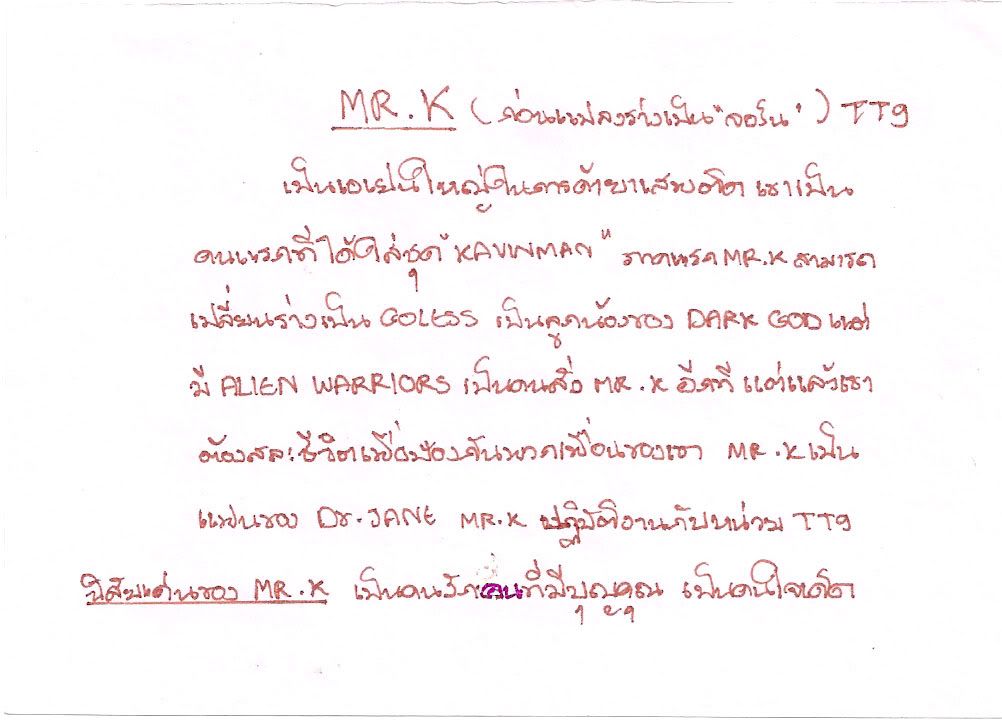 MR.K (ก่อนแปลงร่างเป็น "จอร์น") TT9
เป็นเอเย่นใหญ่ในการค้ายาเสพติด เขาเป็น
คนแรกที่ได้ใส่ชุด "KAVINMAN" ร่างแรก MR.K สามารถ
เปลี่ยนร่างเป็น GOLESS เป็นลูกน้องของ DARK GOD แต่
มี ALIEN WARRIORS เป็นคนสั่ง MR.K อีกที แต่แล้วเขา
ต้องสละชีวิตเพื่อป้องกันพวกเพื่อนของเขา MR.K เป็น
แฟนของ Dr.JANE MR.K ปฏิบัติงานกับหน่วย TT9
นิสัยเด่นของ MR.K เป็นคนรักคนที่มีบุญคุณ เป็นคนใจเด็ด